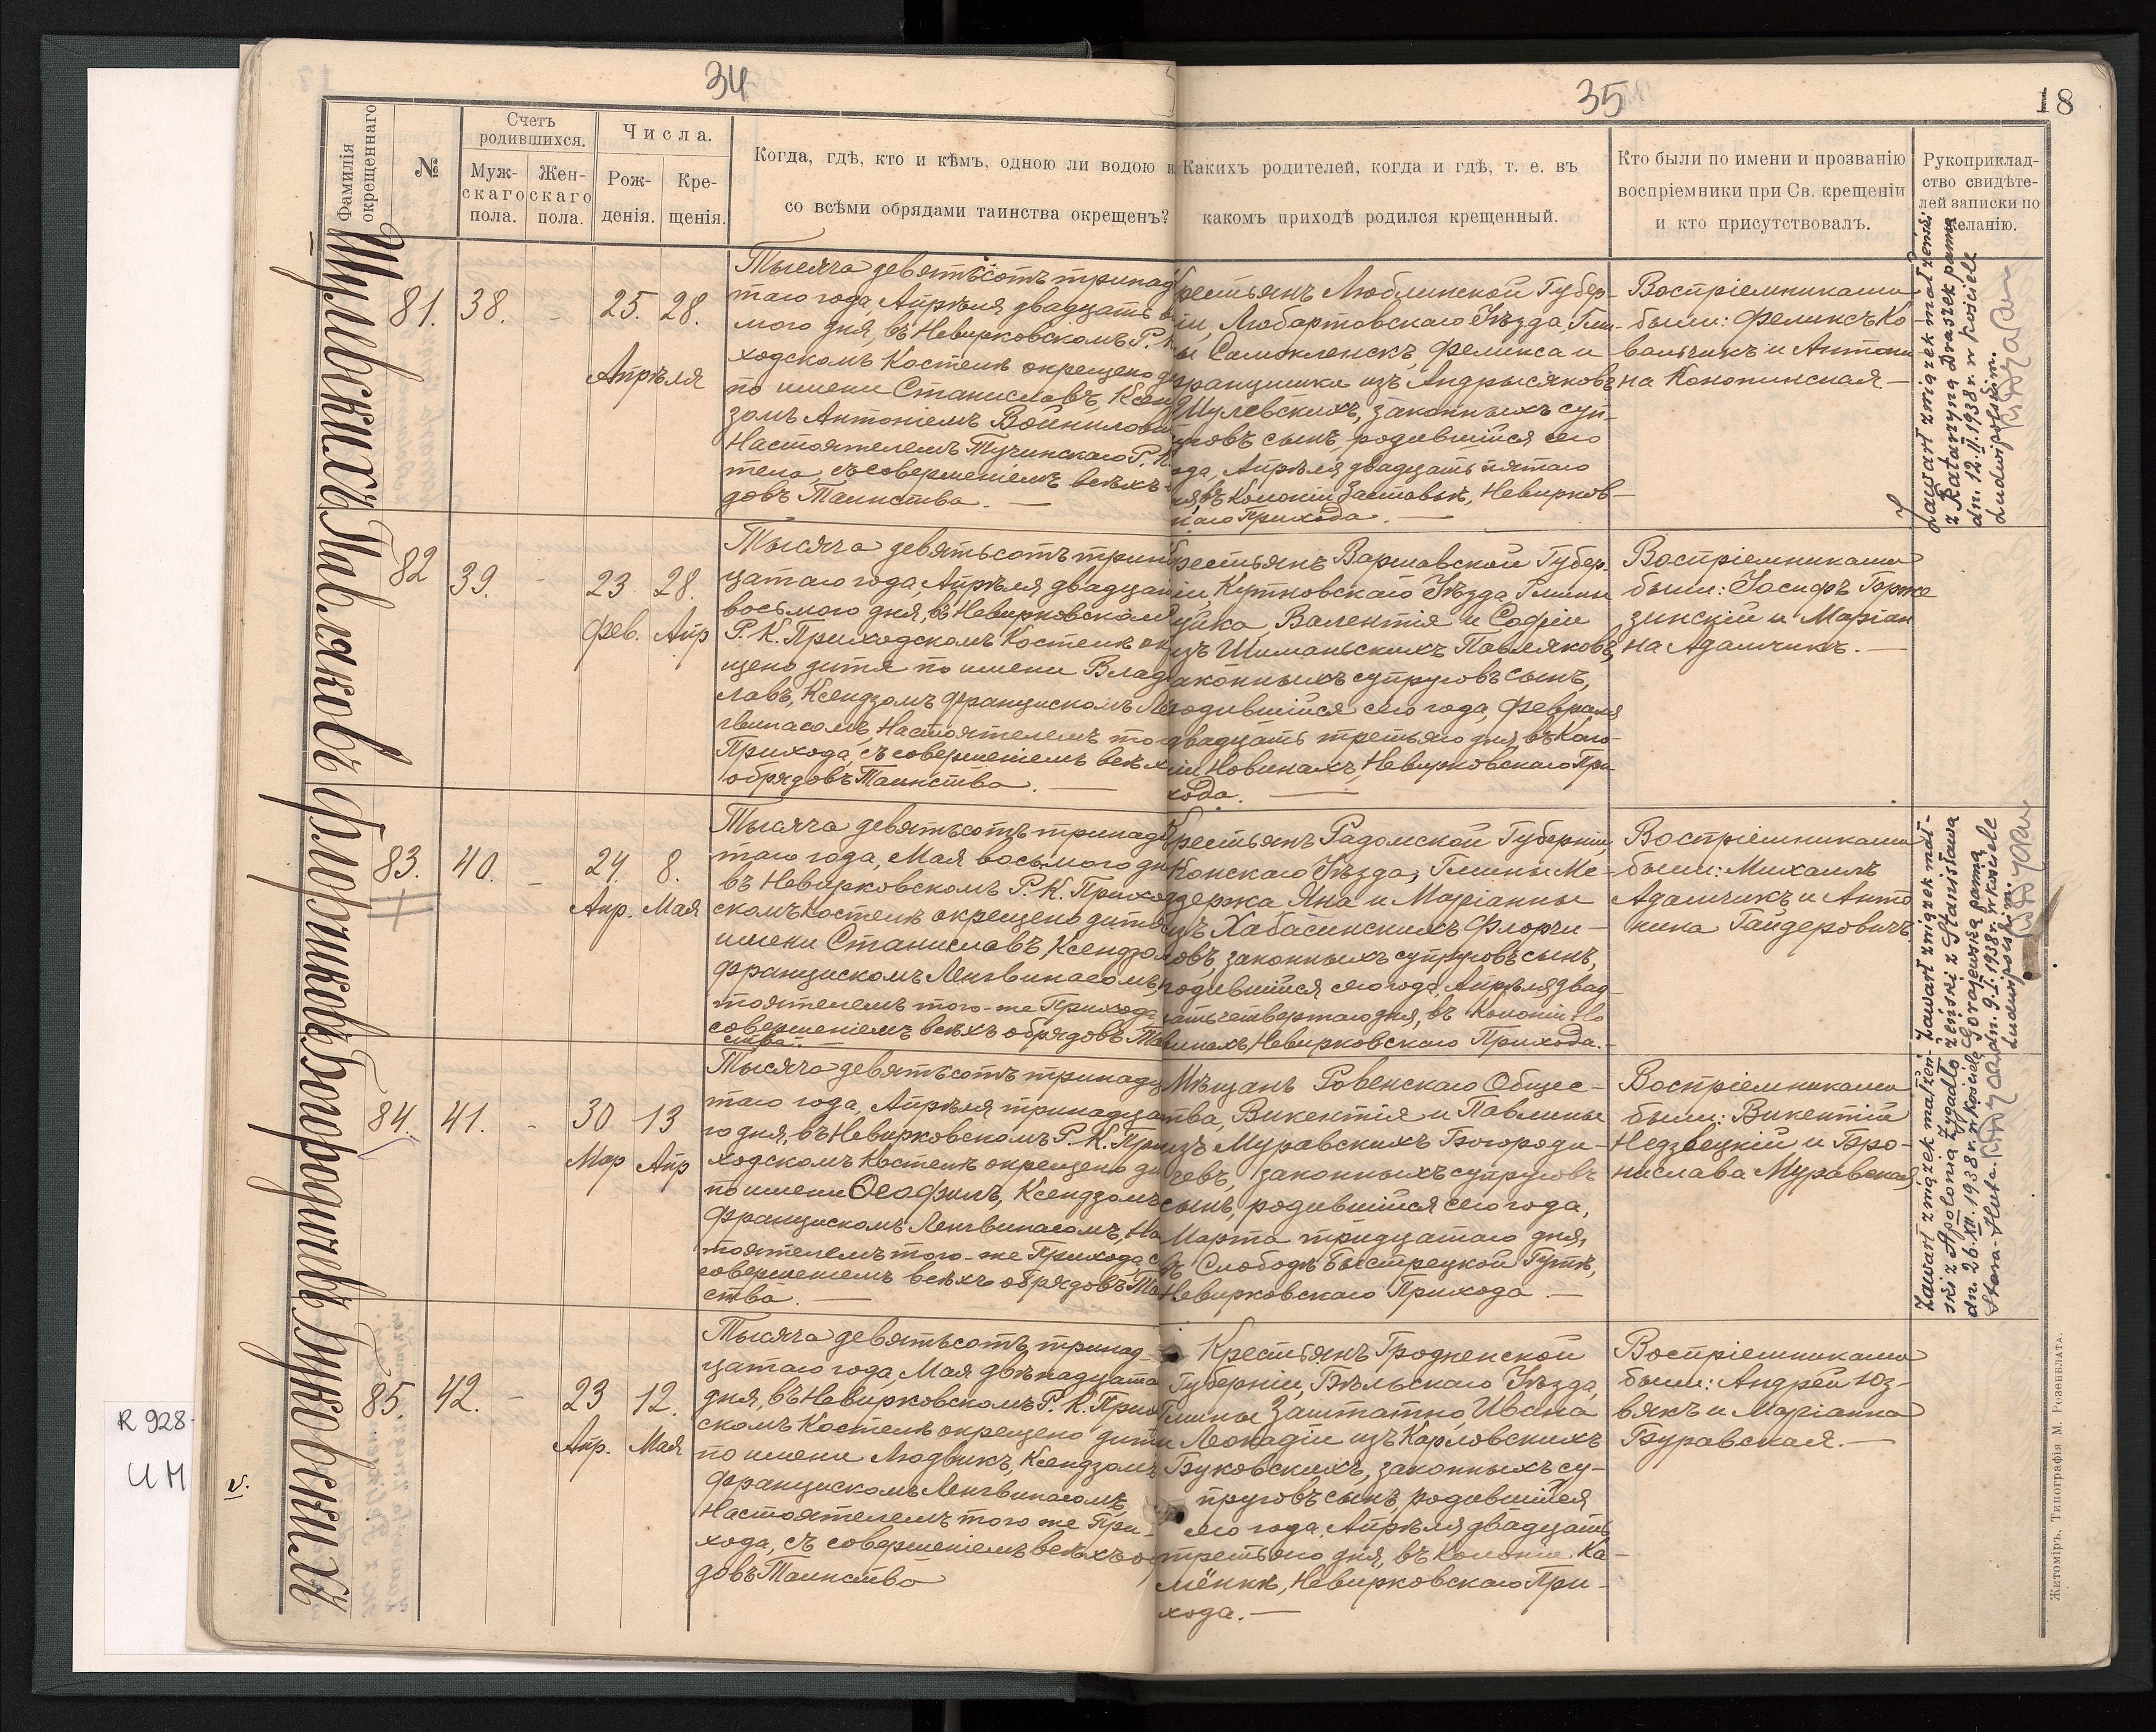 34
35
18
Фамилія
окрещеннаго
№
Счетъ
родившихся.
Муж-
скаго
пола.
Жен-
скаго
пола.
Числа.
Рож-
денія.
Кре-
щенія.
Когда, гдѣ, кто и кѣмъ, одною ли водою и
со всѣми обрядами таинства окрещенъ?
Какихъ родителей, когда и гдѣ, т. е. въ
какомъ приходѣ родился крещенный.
Кто были по имени и прозванію
воспріемники при Св. крещеніи
и кто присутствовалъ.
Рукоприклад-
ство свидѣте-
лей записки по
желанію.
Шулевскихъ
81.
38.
-
25. 28.
Апрѣля
Тысяча девятьсотъ тринад
таго года, Апрѣля двадцать
мого дня, въ Невирковскомъ Р. К.
ходскомъ Костелѣ окрещено
по имени Станиславъ, Ксен
зомъ Антоніемъ Войнилови
Настоятелемъ Тучинскаго Р. К.
тела, съ совершеніемъ всѣхъ
довъ Таинства. —
Крестьянъ Люблинской Губер-
іи, Любартовскаго Уѣзда, Гми-
ны Самокленскъ, Феликса и
Францишки изъ Андрысяковъ
Шулевскихъ, законныхъ суп-
уговъ сынъ, родившійся сего
ода, Апрѣля двадцать пятаго
ня, въ Колоніи Заставье, Невирков-
каго Прихода. —
Воспріемниками
были: Феликсъ Ко-
вальчикъ и Антони
на Конопинская. —
Zawarł związek małżeński
z Katarzyną Draszek panną
dn. 12.II.1938 r. w kościele
Ludwipolskim.
Павляковъ
82
39.
-
23 28.
Фев. Апр
Тысяча девятьсотъ трин
цатаго года, Апрѣля двадцат
восьмого дня, въ Невирковском
Р. К. Приходскомъ Костелѣ ок
щено дитя по имени Влад
лавъ, Ксендзомъ Францискомъ Ле
гвинасомъ, Настоятелемъ того
Прихода, съ совершеніемъ всѣхъ
обрядовъ Таинства. —
Крестьянъ Варшавской Губер-
іи, Кутновскаго Уѣзда Гмины
уйка, Валентія и Софіи
изъ Шиманьскихъ Павляковъ,
аконныхъ супруговъ сынъ,
родившійся сего года, Февраля
двадцать третьяго дня, въ Коло-
ніи Новинахъ, Невирковскаго При
хода. —
Воспріемниками
были: Іосифъ Горже
зинскій и Маріан
на Адамчикъ. —
Флорчиковъ
83.
40.
-
24. 8.
Апр. Мая
Тысяча девятьсотъ тринад
таго года, Мая восьмого дн
въ Невирковскомъ Р. К. Приход
скомъ костелѣ окрещено дитя
имени Станиславъ, Ксендзо
Францискомъ Ленгвинасомъ,
тоятелемъ того-же Прихода
совершеніемъ всѣхъ обрядовъ Таи
ства. —
Крестьянъ Радомской Губерніи
Конскаго Уѣзда, Гмины Ме-
держа Яна и Маріанны
изъ Хабасинскихъ Флорчи-
овъ, законныхъ супруговъ сынъ,
родившійся сего года, Апрѣля двад-
цать четвертаго дня, въ Колоніи Но
винахъ, Невирковскаго Прихода. —
Воспріемниками
были: Михаилъ
Адамчикъ и Анто
нина Гайдеровичъ
Zawarł związek mał-
żeński z Stanisławą
Gorajewską panną
dn. 9.I.1938 r. w kościele
Ludwipolskim.
Богородичевъ
84.
41.
-
30 13
Мар Апр
Тысяча девятьсотъ тринадц
таго года, Апрѣля тринадца
го дня, въ Невирковскомъ Р. К. При
ходскомъ Костелѣ окрещено ди
по имени Ѳеофилъ, Ксендзомъ
Францискомъ Ленгвинасомъ, На
тоятелемъ того-же Прихода, с
совершеніемъ всѣхъ обрядовъ Таи
ства. —
Мѣщанъ Ровенскаго Общес-
тва, Викентія и Павлины
изъ Муравскихъ Богороди-
чевъ, законныхъ супруговъ
сынъ, родившійся сего года,
Марта тридцатаго дня,
въ Слободѣ Быстрецкой Гутѣ,
Невирковскаго Прихода. —
Воспріемниками
были: Викентій
Недзвецкій и Бро-
нислава Муравская
Zawarł związek małżeń-
ski z Apolonią Zygadło
dn. 26.XII.1938 r. w kościele
Stara-Huta.
Буковскихъ
v.
85.
42.
-
23 12.
Апр. Мая
Тысяча девятьсотъ тринад-
цатаго года, Мая двѣнадцата
дня, въ Невирковскомъ Р. К. Прихо
скомъ Костелѣ окрещено дитя
по имени Людвикъ, Ксендзомъ
Францискомъ Ленгвинасомъ,
Настоятелемъ того же При-
хода, съ совершеніемъ всѣхъ о
довъ Таинства
Крестьянъ Гродненской
Губерніи, Бѣльскаго Уѣзда,
Гмины Заштатно, Ивана
и Леокадіи изъ Карловскихъ
Буковскихъ, законныхъ су-
пруговъ сынъ, родившійся
сего года, Апрѣля двадцать
третьяго дня, въ Колоніи Ка-
мёнкѣ, Невирковскаго При-
хода. —
Воспріемниками
были: Андрей Юз-
вякъ и Маріанна
Буравская. —
R 928
Житоміръ, Типографія М. Розенблата.